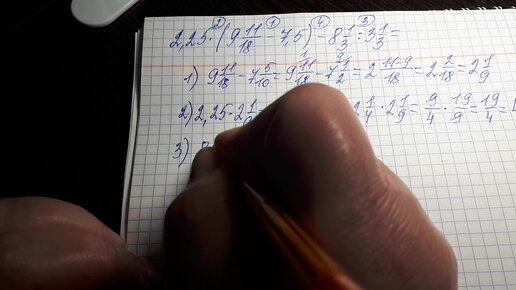 2 1 4 3
2,25 · (9 11/18 - 7,5) - 8 1/3 : 3 1/3 =
1) 9 11/18 - 7 5/10 = 9 11/18 - 7 1/2 = 2 (11-9)/18 = 2 2/18 = 2 1/9
2) 2,25 · 2 1/9 = 2 1/4 · 2 1/9 = 9/4 · 19/9 = 19/4 =
3)